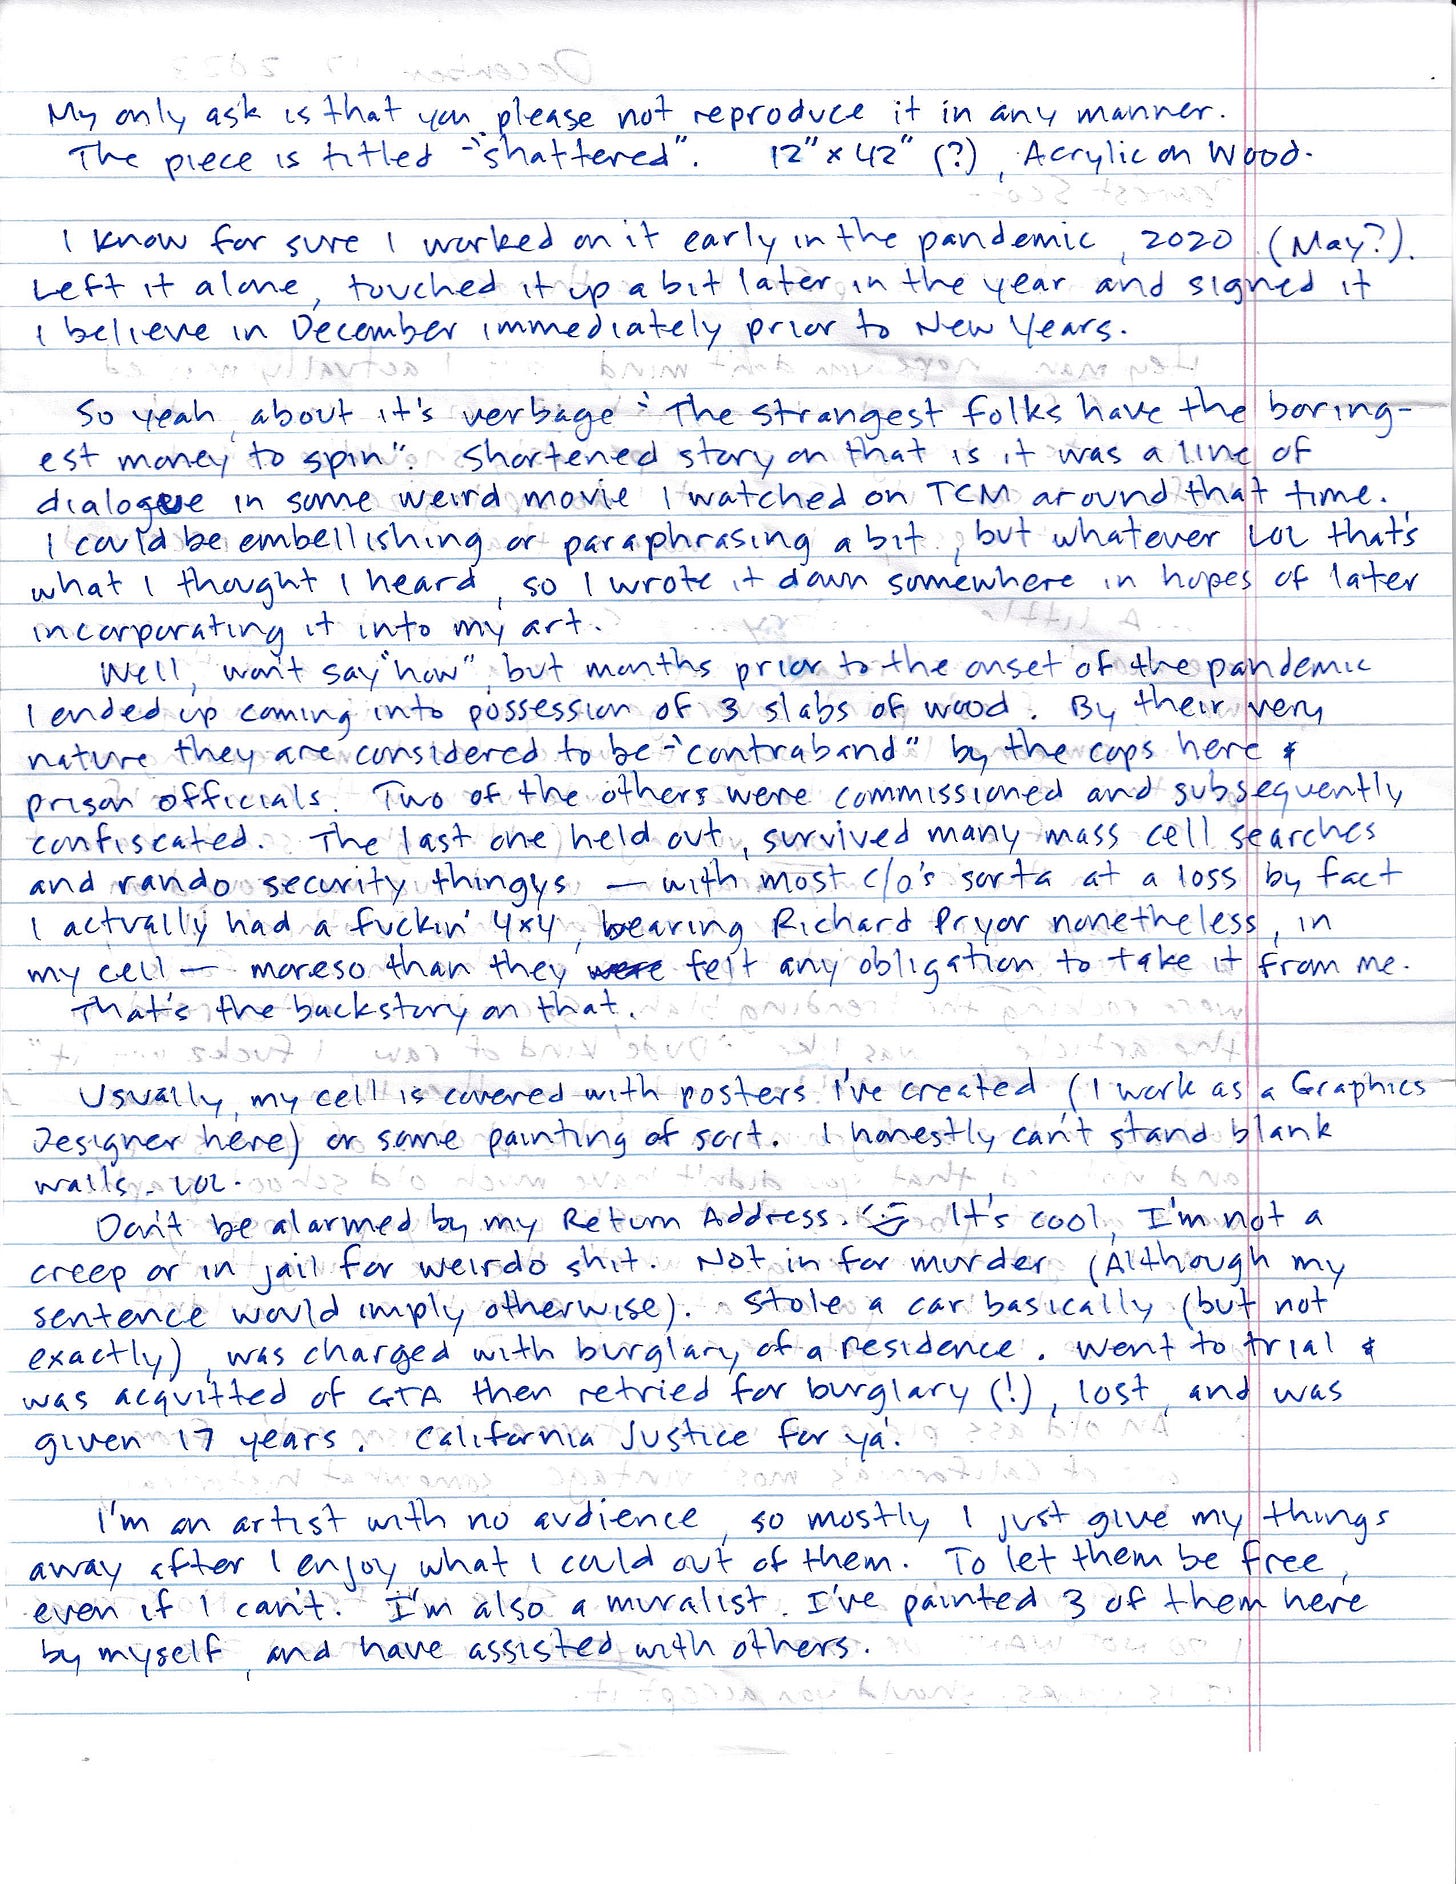 My only ask is that you please not reproduce it in any manner.
The piece is titled - "shattered". 12" x 42" (?), Acrylic on Wood.
I know for sure I worked on it early in the pandemic, 2020 (May?).
Left it alone, touched it up a bit later in the year and signed it
I believe in December immediately prior to New Years.
So yeah, about it's verbage: "The strangest folks have the boring-
est money to spin". Shortened story on that is it was a line of
dialogue in some weird movie I watched on TCM around that time.
I could be embellishing or paraphrasing a bit, but whatever LOL that's
what I thought I heard, so I wrote it down somewhere in hopes of later
incorporating it into my art.
Well, won't say "how", but months prior to the onset of the pandemic
I ended up coming into possession of 3 slabs of wood. By their very
nature they are considered to be - "contraband" by the cops here &
prison officials. Two of the others were commissioned and subsequently
confiscated. The last one held out, survived many mass cell searches
and rando security thingys — with most c/o's sorta at a loss by fact
I actually had a fuckin' 4x4, bearing Richard Pryor nonetheless, in
my cell — moreso than they were felt any obligation to take it from me.
That's the backstory on that.
Usually, my cell is covered with posters I've created (I work as a Graphics
Designer here) or some painting of sort. I honestly can't stand blank
walls. LOL.
Don't be alarmed by my Return Address. It's cool, I'm not a
creep or in jail for weirdo shit. Not in for murder (Although my
sentence would imply otherwise). Stole a car basically (but not
exactly), was charged with burglary of a residence. Went to trial &
was acquitted of GTA then retried for burglary (!), lost, and was
given 17 years. California Justice for ya!
I'm an artist with no audience, so mostly I just give my things
away after I enjoy what I could out of them. To let them be free,
even if I can't. I'm also a muralist. I've painted 3 of them here
by myself, and have assisted with others.